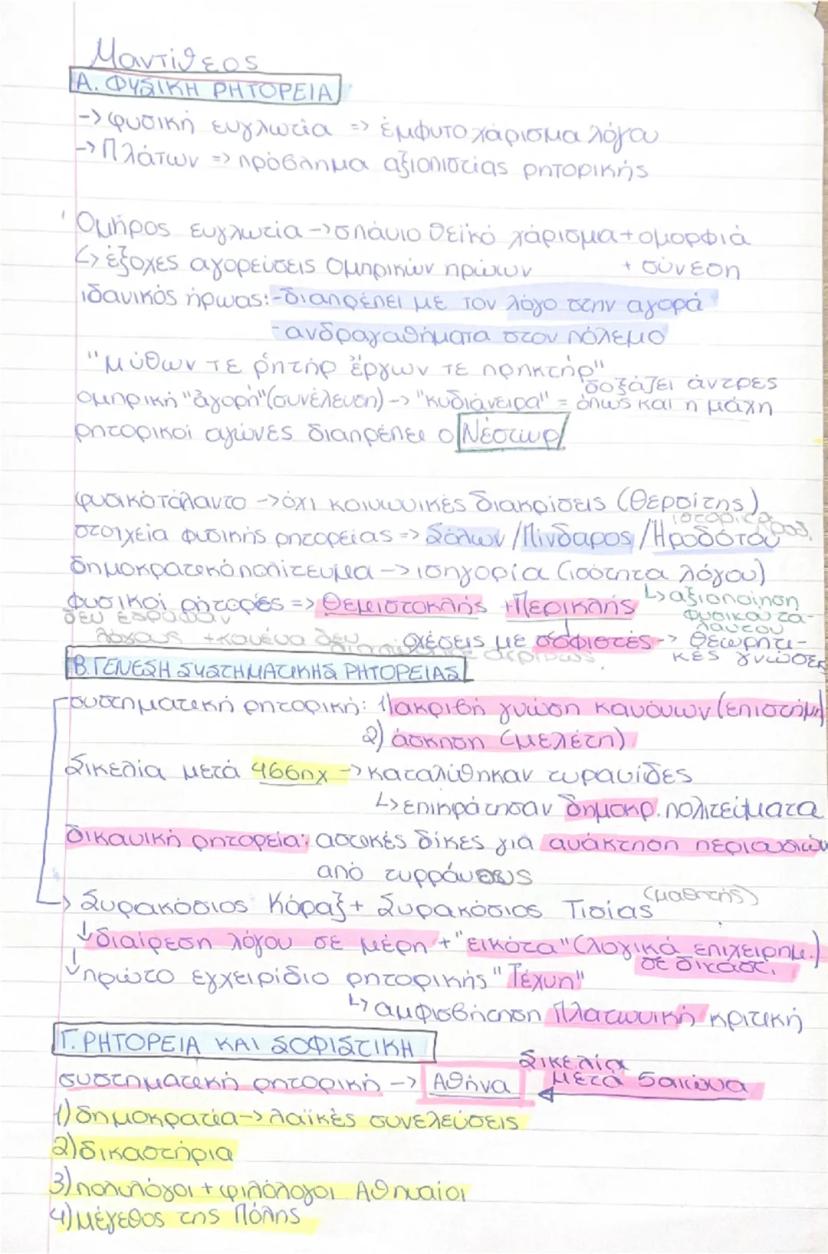 Μαντίθεος
Α. ΦΥΣΙΚΗ ΡΗΤΟΡΕΙΑ
-> φυσική ευγλωτία => έμφυτο χάρισμα λόγου
-> Πλάτων => πρόβλημα αξιοπιστίας ρητορικής
Ομήρος ευγλωτία -> σπάνιο θεϊκό χάρισμα + ομορφιά
↳ έξοχες αγορεύσεις Ομηρικών ηρώων + σύνεση
ιδανικός ήρωας: -διαπρέπει με τον λόγο στην αγορά
-ανδραγαθήματα στον πόλεμο
"μύθων τε ῥητήρ ἔργων τε πρηκτήρ"
δοξάζει άντρες
ομηρική "ἀγορή" (συνέλευση) -> "κυδιάνειρα" = όπως και η μάχη
ρητορικοί αγώνες διαπρέπει ο Νέστωρ
φυσικό ταλαντο -> όχι κοινωνικές διακρίσεις (Θερσίτης)
στοιχεία φυσικής ρητορείας => Σόλων / Πίνδαρος / Ηροδότου
δημοκρατικό πολίτευμα -> ισηγορία (ισότητα λόγου)
φυσικοί ρήτορές => Θεμιστοκλής + Περικλής ↳ αξιοποίηση
φυσικού τα-
λαντου
δεν έγραψαν
λόγους + κανένα δεν
σχέσεις με σοφιστές -> θεωρητι-
κές γνώσεις
Β. ΓΕΝΕΣΗ ΣΥΣΤΗΜΑΤΙΚΗΣ ΡΗΤΟΡΕΙΑΣ
συστηματική ρητορική: 1) ακριβή γνώση κανόνων (επιστήμη)
2) άσκηση (μελέτη)
Σικελία μετά 466πχ -> καταλύθηκαν τυραννίδες
↳ επικράτησαν δημοκρ. πολιτεύματα
δικανική ρητορεία: αστικές δίκες για ανάκτηση περιουσιών
από τυρράννους
-> Συρακόσιος Κόραξ + Συρακόσιος Τισίας (μαθητής)
↓ διαίρεση λόγου σε μέρη + "εικότα" (λογικά επιχειρημ.)
σε δικαστ.
↓ πρώτο εγχειρίδιο ρητορικής "Τέχνη"
↳ αμφισβήτηση Πλατωνική κριτική
Γ. ΡΗΤΟΡΕΙΑ ΚΑΙ ΣΟΦΙΣΤΙΚΗ
Σικελία
συστηματική ρητορική -> Αθήνα μετά 5 αιώνα
1) δημοκρατία -> λαϊκές συνελεύσεις
2) δικαστήρια
3) πολυλόγοι + φιλόλογοι Αθηναίοι
4) μέγεθος της Πόλης